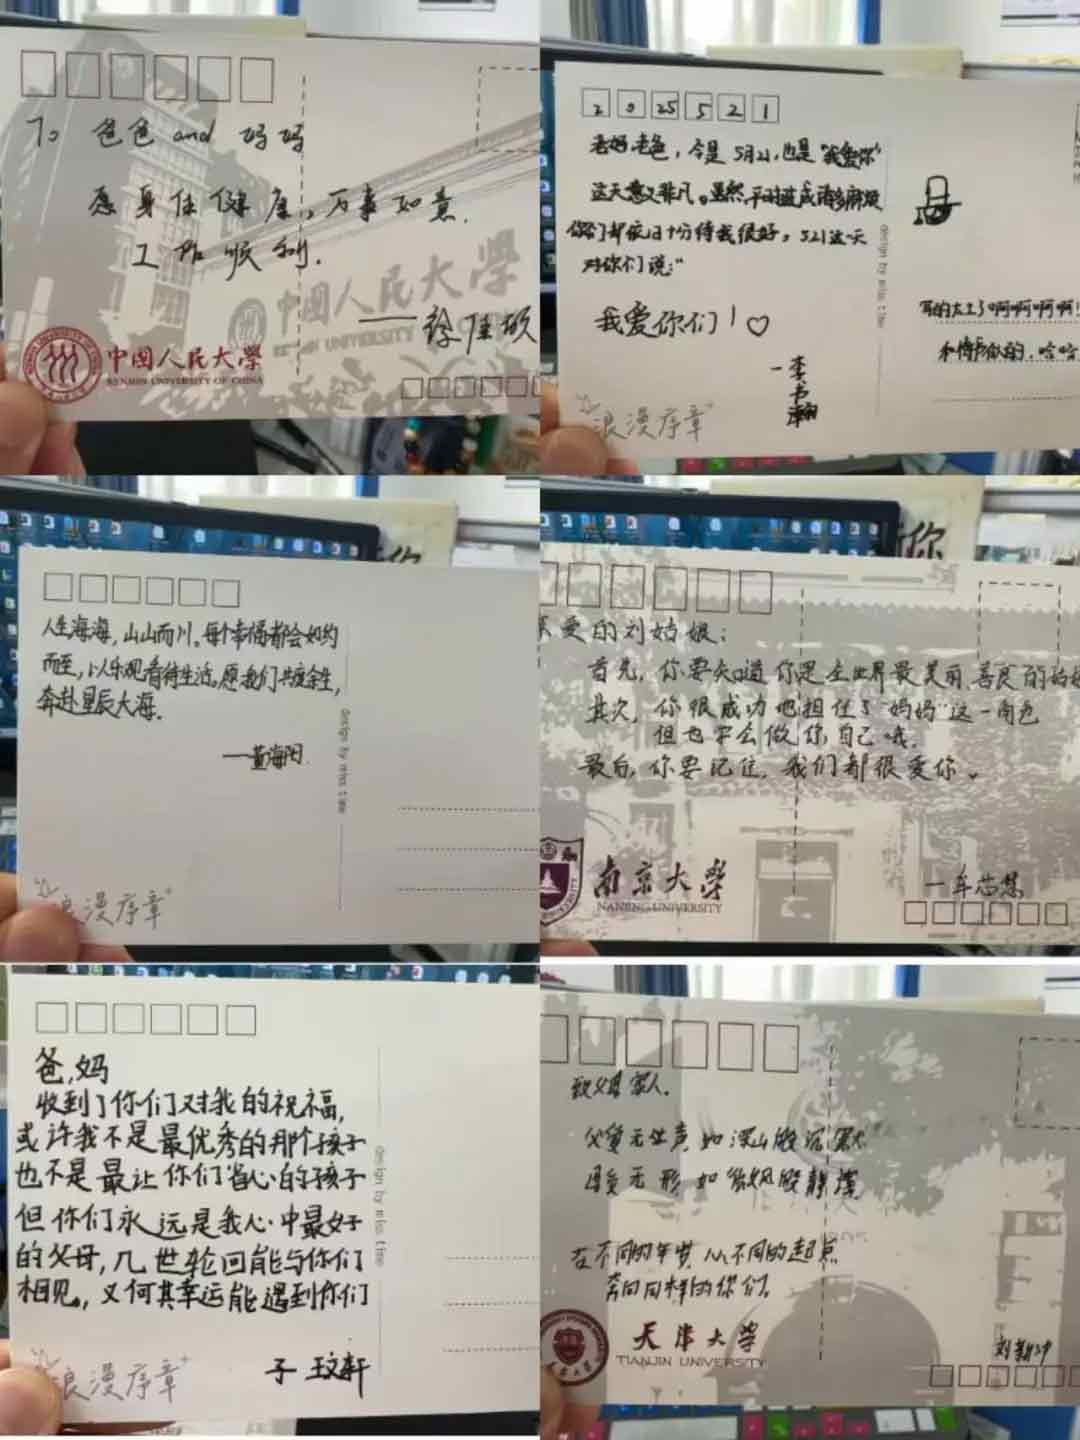 To 爸爸 and 妈妈
愿身体健康,万事如意.
工作顺利.
中国人民大学
中國人民大學
RENMIN UNIVERSITY OF CHINA
2 0 25 5 2 1
老妈,老爸,今是5月21,也是"我爱你"
这天意义非凡。虽然,平时造成诸多麻烦
你们都依旧十分待我很好,521这天
对你们说:"
我爱你们!♡
一李书瀚
写的太土了啊啊啊啊!
哈哈
design by miss time
浪漫序章
人生海海,山山而川。每个幸福都会如约
而至,以乐观看待生活。愿我们共度余生,
奔赴星辰大海.
——黄海阳.
design by miss time
浪漫序章
爱的刘姑娘:
首先,你要知道你是全世界最美丽、善良的姑娘
其次,你很成功地担任了"妈妈"这一角色
但也不会做你自己哦.
最后,你要记住,我们都很爱你。
南京大學
NANJING UNIVERSITY
一车芯慧
爸,妈
收到了你们对我的祝福,
或许我不是最优秀的那个孩子
也不是最让你们省心的孩子
但你们永远是我心中最好
的父母,几世轮回能与你们
相见,又何其幸运能遇到你们
子 王文轩
design by miss time
浪漫序章
致父母家人.
父爱无声,如深山般沉默
母爱无形,如微风般静谧
在不同的年岁,从不同的起点
奔向同样的你们。
天津大学
TIANJIN UNIVERSITY